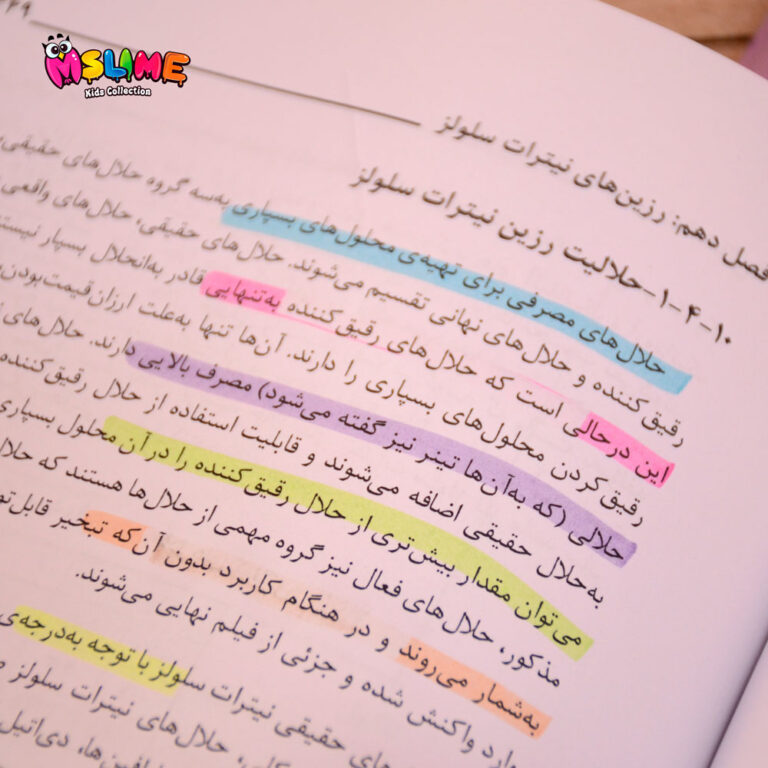 MSLIME
Kids Collection
فصل دهم: رزین‌های نیترات سلولز
۱۰-۴-۱-حلالیت رزین نیترات سلولز
حلال‌های مصرفی برای تهیه‌ی محلول‌های بسپاری به‌سه گروه حلال‌های حقیقی،
رقیق کننده و حلال‌های نهانی تقسیم می‌شوند. حلال‌های حقیقی، حلال‌های واقعی
این درحالی است که حلال‌های رقیق‌کننده به‌تنهایی قادر به‌انحلال بسپار نیستند
رقیق کردن محلول‌های بسپاری را دارند. آن‌ها تنها به‌علت ارزان‌قیمت‌بودن
حلالی (که به‌آن‌ها تینر نیز گفته می‌شود) مصرف بالایی دارند. حلال‌های
به‌حلال حقیقی اضافه می‌شوند و قابلیت استفاده از حلال رقیق‌کننده
می‌توان مقدار بیش‌تری از حلال رقیق‌کننده را درآن محلول بسپاری
مذکور، حلال‌های فعال نیز گروه مهمی از حلال‌ها هستند که
به‌شمار می‌روند و در هنگام کاربرد بدون آن‌که تبخیر
وارد واکنش شده و جزئی از فیلم نهایی می‌شوند.
حقیقی نیترات سلولز با توجه به‌درجه‌ی
حلال‌های نیترات سلولز
دی‌اتیل